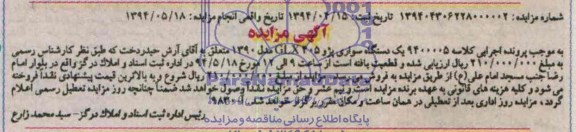 شماره مزایده: ۱۳۹۴۰۴۳۰۶۲۲۸۰۰۰۰۰۲ تاریخ ثبت: ۱۳۹۴/۰۴/۱۵ تاریخ واقعی انجام مزایده: ۱۳۹۴/۰۵/۱۸
آگهی مزایده
به موجب پرونده اجرایی کلاسه ۹۴۰۰۰۰۵ یک دستگاه سواری پژو ۴۰۵ GLX مدل ۱۳۹۰ متعلق به آقای آرش حیدردخت که طبق نظر کارشناس رسمی
به مبلغ ۲۱۰/۰۰۰/۰۰۰ ریال ارزیابی شده و قطعیت یافته است از ساعت ۹ الی ۱۲ مورخ ۹۴/۵/۱۸ در اداره ثبت اسناد و املاک درگز واقع در بلوار امام
رضا جنب مسجد امام علی(ع) از طریق مزایده به فروش می رسد. مزایده از مبلغ ریال شروع و به بالاترین قیمت پیشنهادی نقدا فروخته
می شود و کلیه هزینه های قانونی به عهده برنده مزایده است و نیم عشر و حق مزایده نقدا وصول خواهد شد ضمنا چنانچه روز مزایده تعطیل رسمی اعلام
گردد ، مزایده روز اداری بعد از تعطیلی در همان ساعت و مکان مقرر برگزار خواهد شد.
رئیس اداره ثبت اسناد و املاک درگز – سید محمد زارع
پایگاه اطلاع رسانی مناقصه و مزایده